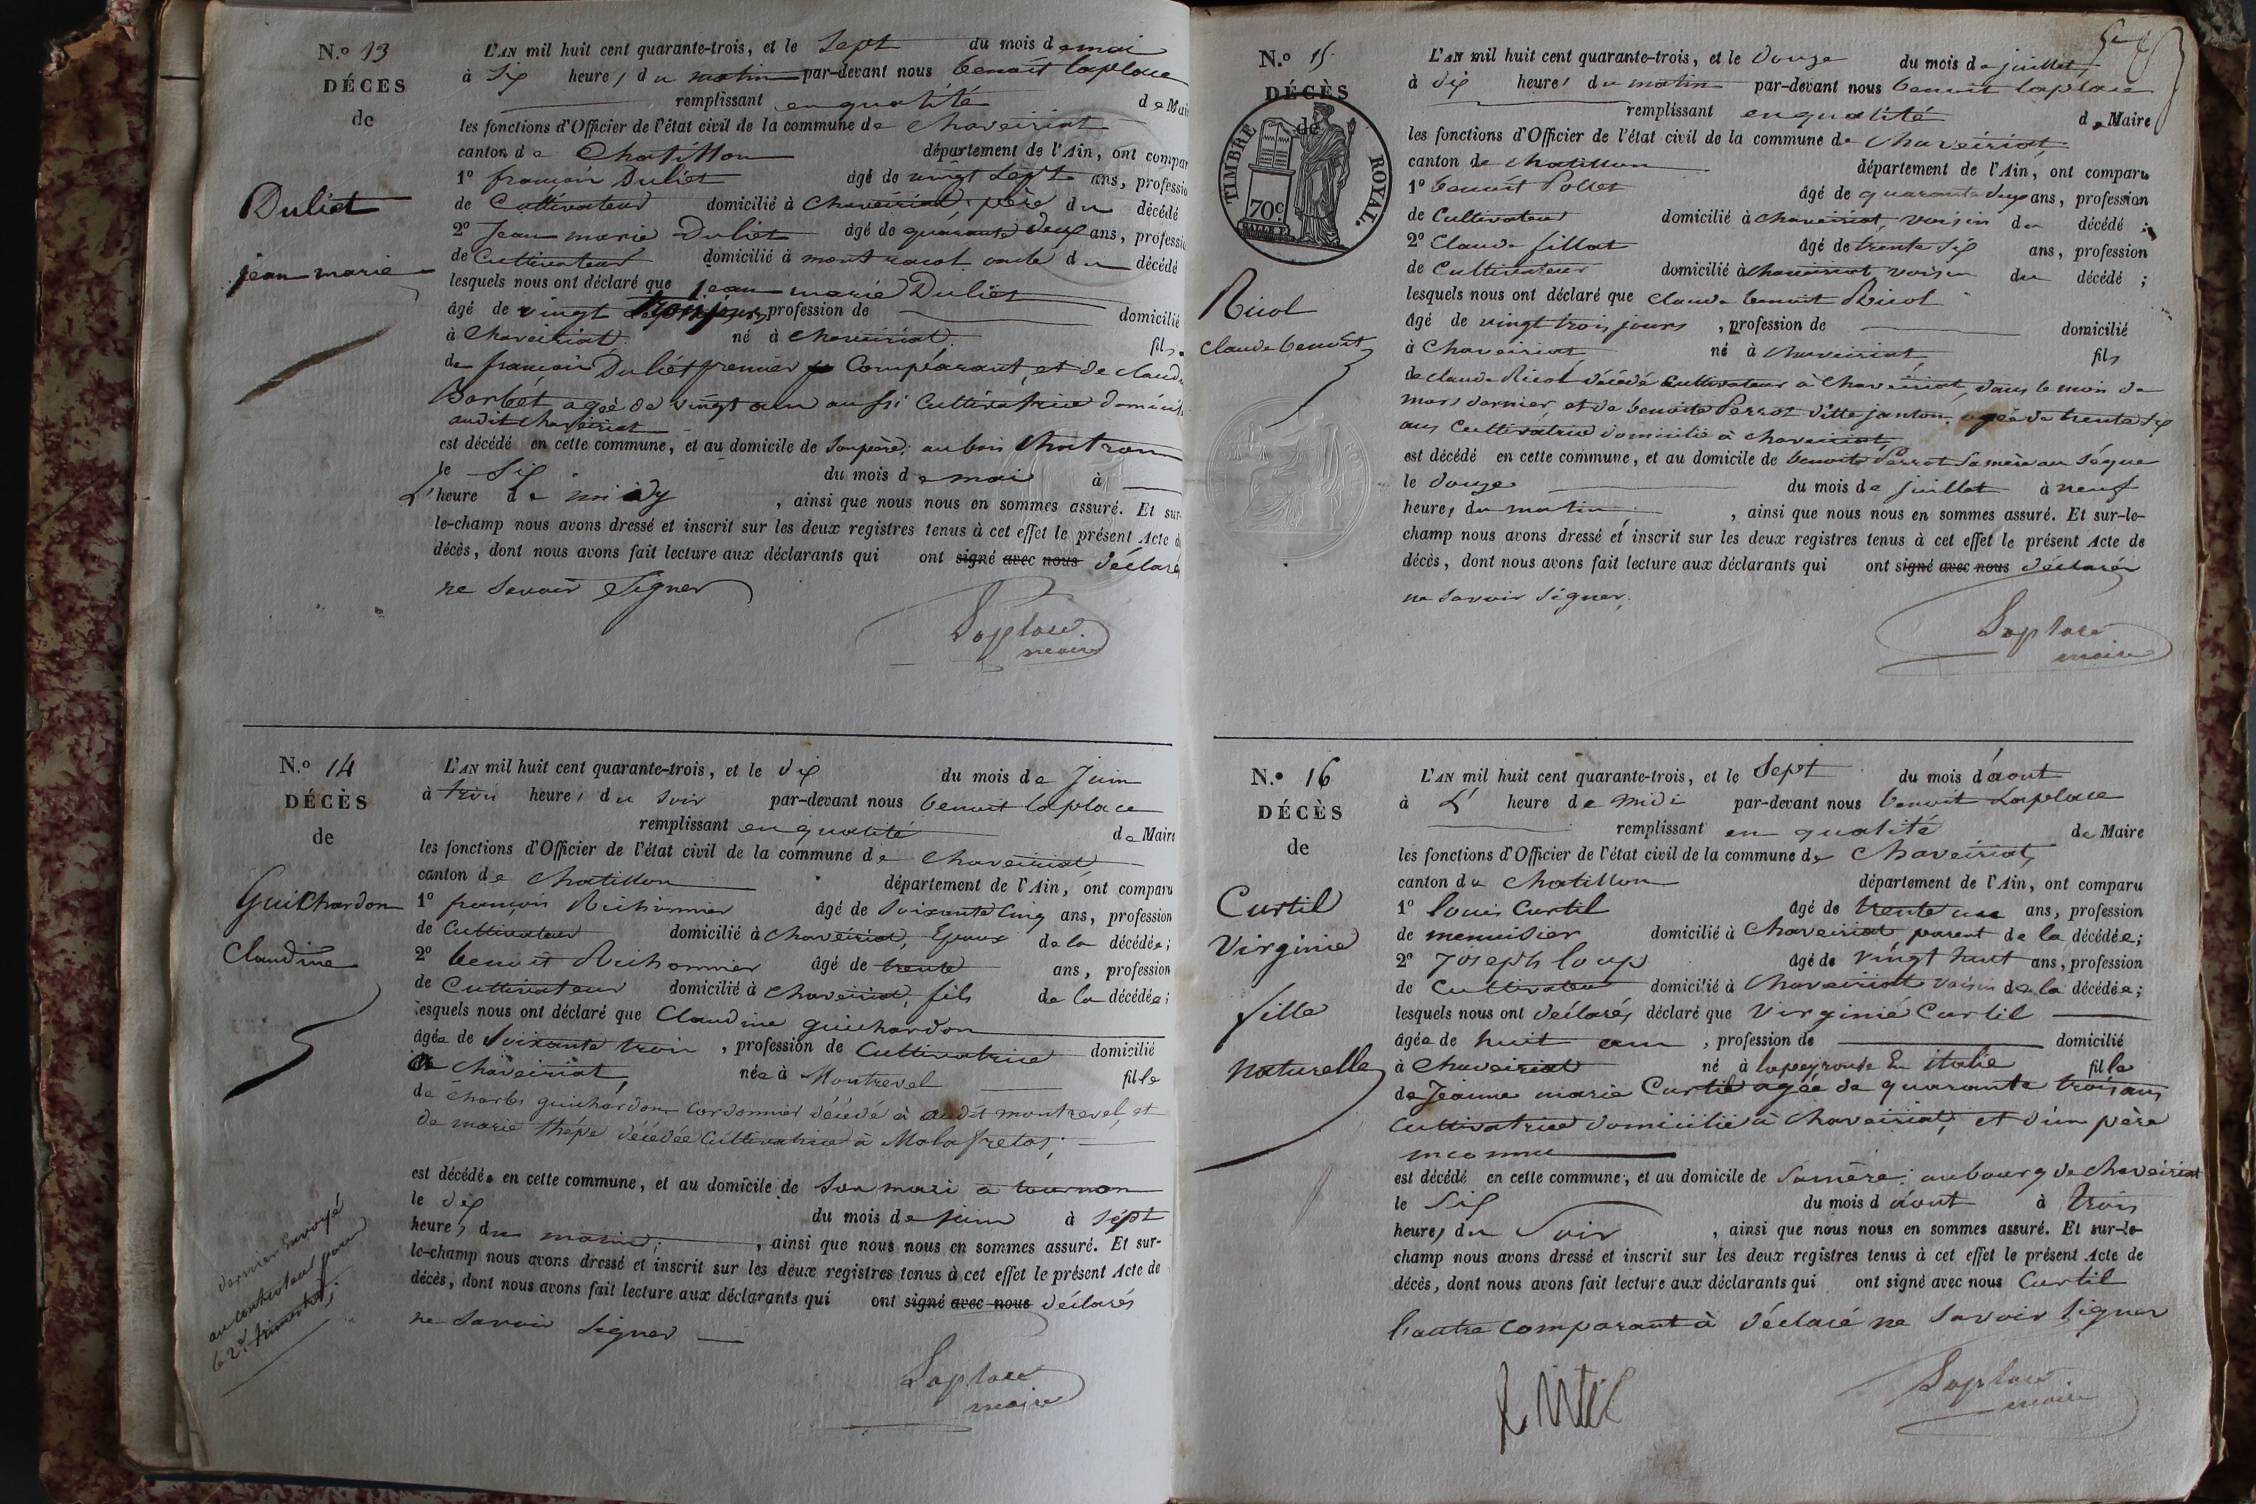 N.o 13
DÉCES
de
Duliet
jean marie
L'AN mil huit cent quarante-trois, et le Sept du mois de mai
à Six heures du matin par-devant nous benoît laplace
remplissant en qualité de Mair
les fonctions d'Officier de l'état civil de la commune de chaveiriat
canton de Chatillon département de l'Ain, ont compar
1o françois Duliet âgé de vingt Sept ans, professio
de Cultivateur domicilié à chaveiriat, père du décédé
2o Jean marie Duliet âgé de quarante deux ans, professio
de Cultivateur domicilié à montracol oncle du décédé
lesquels nous ont déclaré que jean marie Duliet
âgé de vingt trois jours profession de domicilié
à chaveiriat né à chaveiriat fils
de françois Duliet premier Comparant, et de claud
Barbét agée de vingt aun aussi Cultivatrice domicili
audit chaveiriat
est décédé en cette commune, et au domicile de Son père; au bois
le Six du mois de mai à
L'heure de midy , ainsi que nous nous en sommes assuré. Et sur-
le-champ nous avons dressé et inscrit sur les deux registres tenus à cet effet le présent Acte d
décès, dont nous avons fait lecture aux déclarants qui ont signé avec nous déclaré
ne Savoir Signer
Laplace
maire
N.o 14
DÉCÈS
de
Guichardon
Claudine
dernier Envoyé
au controleur pour
le 2e. trimestre;
L'AN mil huit cent quarante-trois, et le dix du mois de Juin
à trois heures du Soir par-devant nous benoit laplace
remplissant en qualité de Maire
les fonctions d'Officier de l'état civil de la commune de chaveiriat
canton de chatillon département de l'Ain, ont comparu
1o françois Richonnier âgé de Soixante Cinq ans, profession
de Cultivateur domicilié à chaveiriat, Epoux de la décédée;
2o benoit Richonnier âgé de trente ans, profession
de Cultivateur domicilié à chaveiriat, fils de la décédée;
lesquels nous ont déclaré que Claudine guichardon
âgée de Soixante trois , profession de Cultivatrice domicilié
à chaveiriat, née à Montrevel fille
de charles guichardon Cordonnier décédé à audit montrevel, et
de marie thépe décédée Cultivatrice à Malafretas;
est décédée en cette commune, et au domicile de Son mari à tournon
le dix du mois de juin à Sépt
heures du matin; , ainsi que nous nous en sommes assuré. Et sur-
le-champ nous avons dressé et inscrit sur les deux registres tenus à cet effet le présent Acte de
décès, dont nous avons fait lecture aux déclarants qui ont signé avec nous déclarés
ne Savoir Signer
Laplace
maire
N.o 15
DÉCÈS
de
TIMBRE ROYAL.
70c
Ricol
claude benoit
L'AN mil huit cent quarante-trois, et le douze du mois de juillet
à dix heures du matin par-devant nous benoit laplace
remplissant en qualité de Maire
les fonctions d'Officier de l'état civil de la commune de chaveiriat
canton de chatillon département de l'Ain, ont comparu
1o benoit Pollet âgé de quarante deux ans, profession
de Cultivateur domicilié à chaveiriat, voisin du décédé ;
2o Claude fillat âgé de trente Six ans, profession
de Cultivateur domicilié à chaveiriat voisin du décédé ;
lesquels nous ont déclaré que claude benoit Ricol
âgé de vingt trois jours , profession de domicilié
à chaveiriat né à chaveiriat fils
de claude Ricol décédé Cultivateur à chaveiriat, dans le mois de
mars dernier, et de benoite Perrot ditte janton, agée de trente Six
ans Cultivatrice domicilié à chaveiriat,
est décédé en cette commune, et au domicile de benoite Perrot Sa mère au
le douze du mois de juillet à neuf
heures du matin , ainsi que nous nous en sommes assuré. Et sur-le-
champ nous avons dressé et inscrit sur les deux registres tenus à cet effet le présent Acte de
décès, dont nous avons fait lecture aux déclarants qui ont signé avec nous déclarés
ne Savoir Signer.
Laplace
maire
N.o 16
DÉCÈS
de
Curtil
Virginie
fille
naturelle
L'AN mil huit cent quarante-trois, et le Sept du mois d'aout
à L' heure de Midi par-devant nous benoit Laplace
remplissant en qualité de Maire
les fonctions d'Officier de l'état civil de la commune de chaveiriat,
canton de chatillon département de l'Ain, ont comparu
1o louis Curtil âgé de trente un ans, profession
de menuisier domicilié à chaveiriat, parent de la décédée;
2o Joseph loup âgé de vingt huit ans, profession
de Cultivateur domicilié à chaveiriat voisin de la décédée;
lesquels nous ont déclarés déclaré que Virginie Curtil
âgée de huit ans , profession de domicilié
à chaveiriat né à lapeyrouse En italie fille
de Jeanne marie Curtil agée de quarante trois ans
Cultivatrice domicilié à chaveiriat, et d'un père
inconnu
est décédé en cette commune, et au domicile de Sa mère; au bourg de chaveiriat
le Six du mois d'aout à trois
heures du Soir , ainsi que nous nous en sommes assuré. Et sur-le-
champ nous avons dressé et inscrit sur les deux registres tenus à cet effet le présent Acte de
décès, dont nous avons fait lecture aux déclarants qui ont signé avec nous Curtil
l'autre comparant à déclaré ne Savoir Signer
Laplace
maire